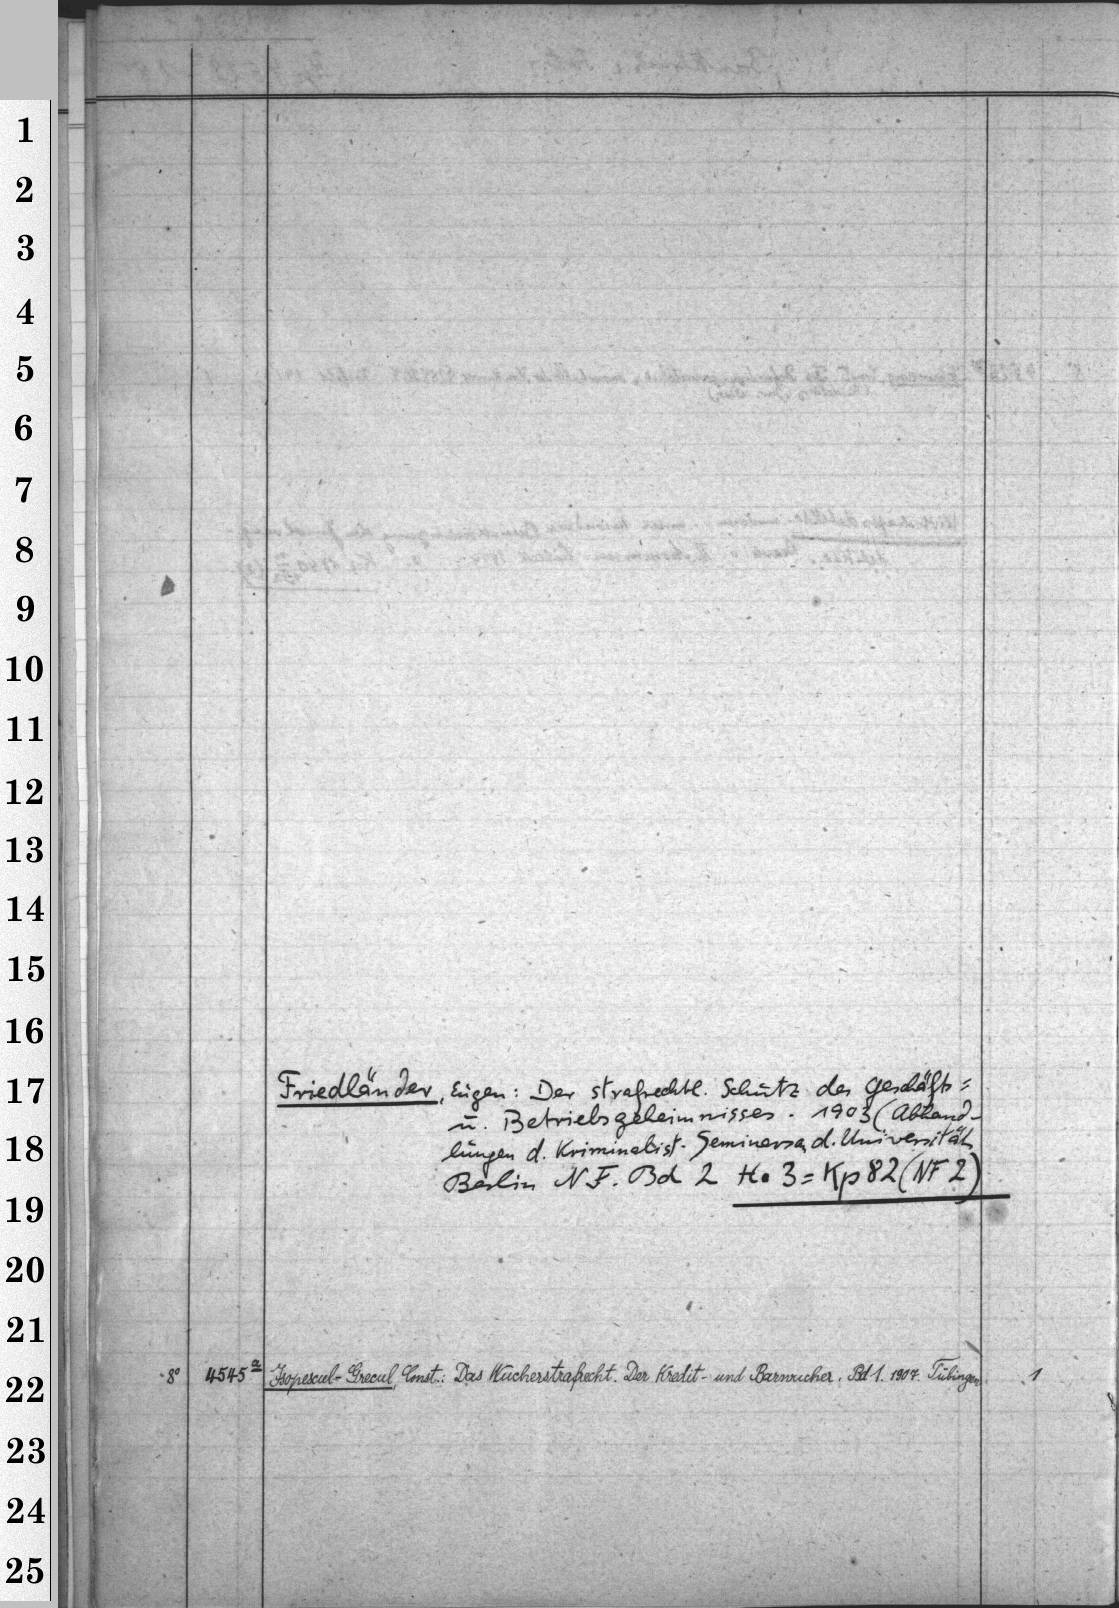 1
2
3
4
5
6
7
8
9
10
11
12
13
14
15
16
17
Friedländer, Eugen: Der strafrechtl. Schutz des Geschäfts=
u. Betriebsgeheimnisses. 1903 (Abhand-
18
lungen d. Kriminalist. Seminars a. d. Universität
Berlin N.F. Bd 2 H. 3 = Kp 82 (NF 2)
19
20
21
22
8° 4545 a Isopescul-Grecul, Const.: Das Wucherstrafrecht. Der Kredit- und Barwucher. Bd 1. 1907. Tübingen 1
23
24
25